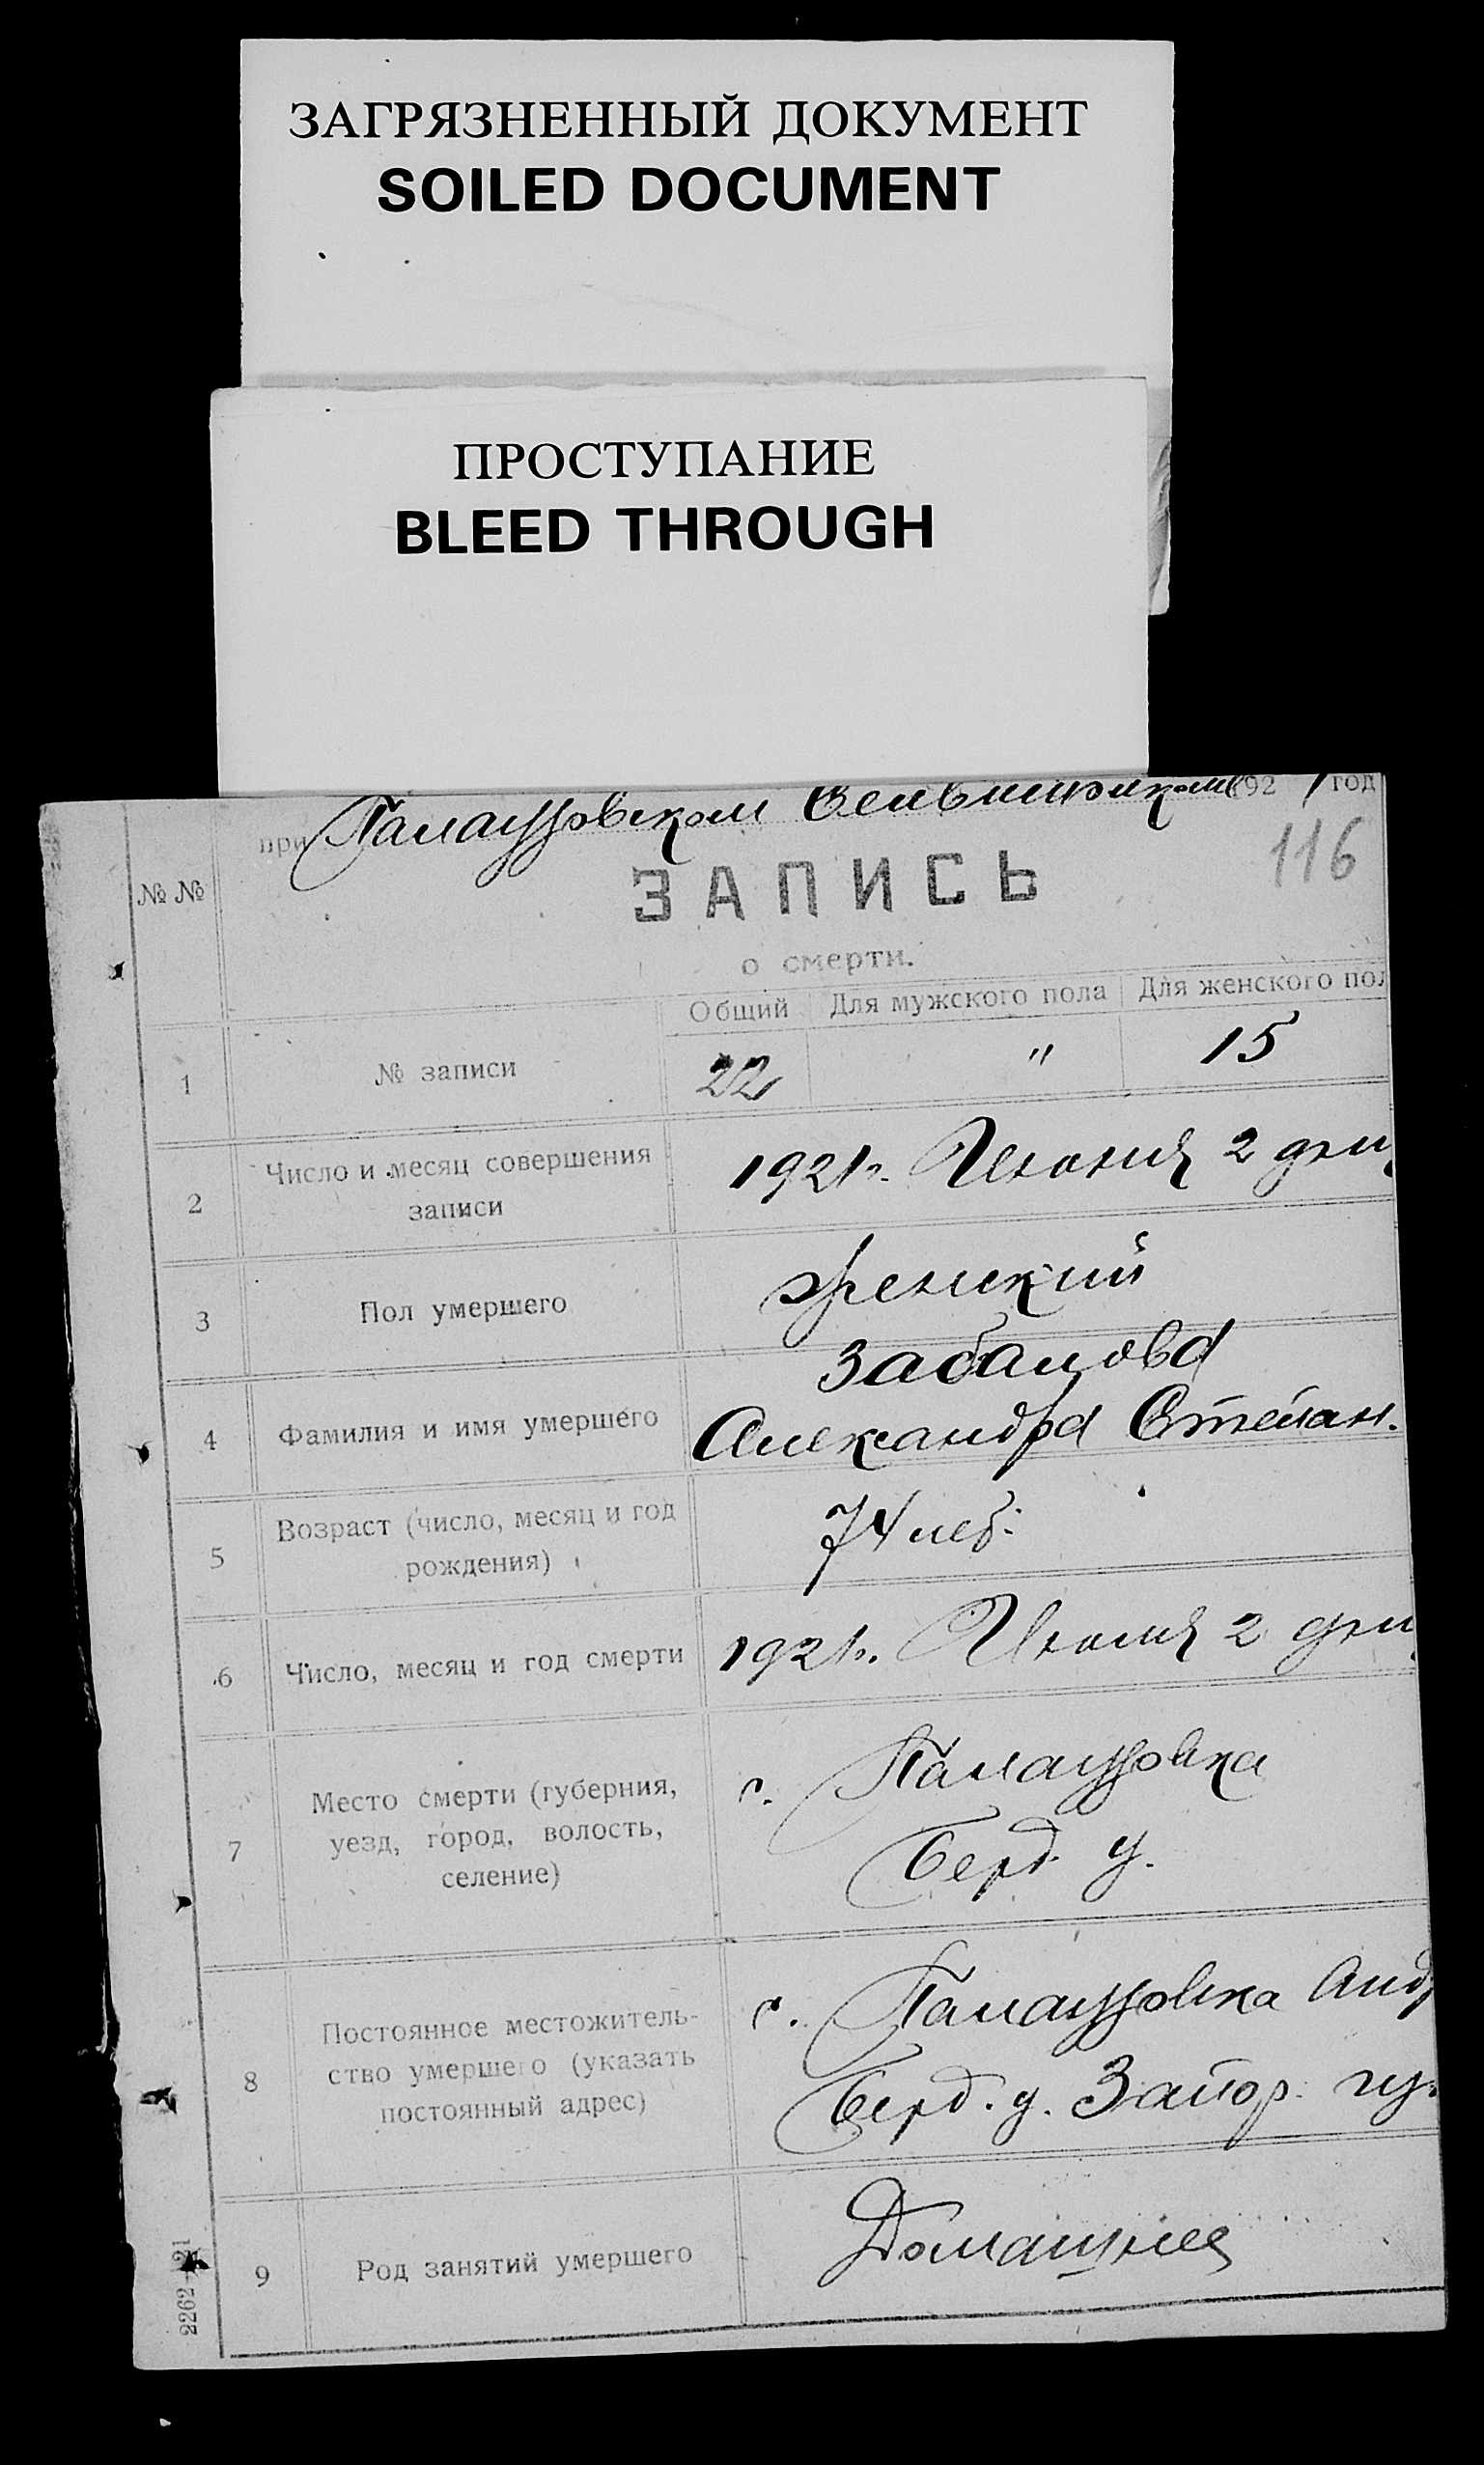 ЗАГРЯЗНЕННЫЙ ДОКУМЕНТ
SOILED DOCUMENT
ПРОСТУПАНИЕ
BLEED THROUGH
при 192 1 год
116
№ №
ЗАПИСЬ
о смерти.
Общий Для мужского пола Для женского пол
1 № записи 22 " 15
2 Число и месяц совершения
записи
1921г. Июния 2 дня
3 Пол умершего женский
4 Фамилия и имя умершего
Забацова
Александра Степан.
5 Возраст (число, месяц и год
рождения)
74 лет.
6 Число, месяц и год смерти 1921г. 2 дня
7 Место смерти (губерния,
уезд, город, волость,
селение)
с. Палаузовка
Берд. у.
8 Постоянное местожитель-
ство умершего (указать
постоянный адрес)
с. Палаузовка Анд
Берд. у. Запор. гу.
9 Род занятий умершего Домашнее
2262—21